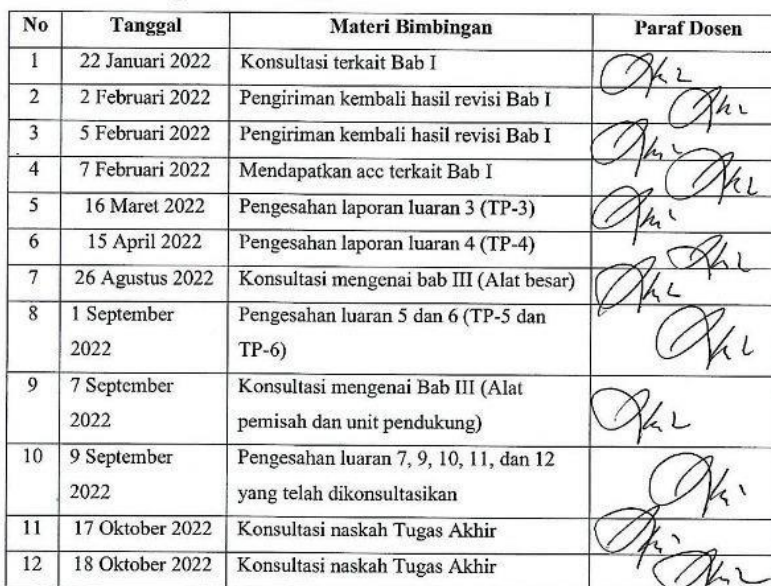 No Tanggal Materi Bimbingan Paraf Dosen
1 22 Januari 2022 Konsultasi terkait Bab I
2 2 Februari 2022 Pengiriman kembali hasil revisi Bab I
3 5 Februari 2022 Pengiriman kembali hasil revisi Bab I
4 7 Februari 2022 Mendapatkan acc terkait Bab I
5 16 Maret 2022 Pengesahan laporan luaran 3 (TP-3)
6 15 April 2022 Pengesahan laporan luaran 4 (TP-4)
7 26 Agustus 2022 Konsultasi mengenai bab III (Alat besar)
8 1 September Pengesahan luaran 5 dan 6 (TP-5 dan
2022 TP-6)
9 7 September Konsultasi mengenai Bab III (Alat
2022 pemisah dan unit pendukung)
10 9 September Pengesahan luaran 7, 9, 10, 11, dan 12
2022 yang telah dikonsultasikan
11 17 Oktober 2022 Konsultasi naskah Tugas Akhir
12 18 Oktober 2022 Konsultasi naskah Tugas Akhir